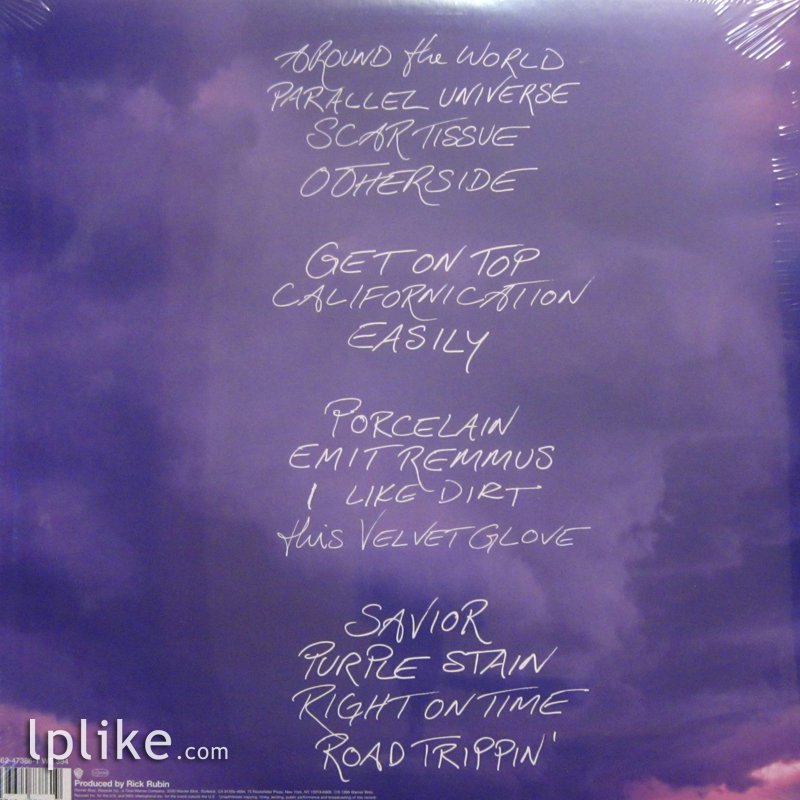 AROUND the WORLD
PARALLEL UNIVERSE
SCAR TISSUE
OTHERSIDE
GET ON TOP
CALIFORNICATION
EASILY
PORCELAIN
EMIT REMMUS
I LIKE DIRT
this VELVET GLOVE
SAVIOR
PURPLE STAIN
RIGHT ON TIME
ROAD TRIPPIN'
lplike.com
Produced by Rick Rubin